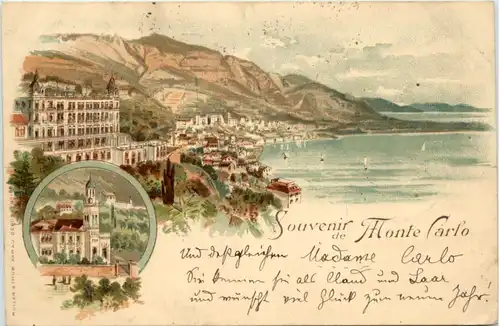 Souvenir
de Monte Carlo
Und deßgleichen Madame Carlo
Sie kennen sie als Claud und Saar
und wünscht viel Glück zum neuen Jahr!